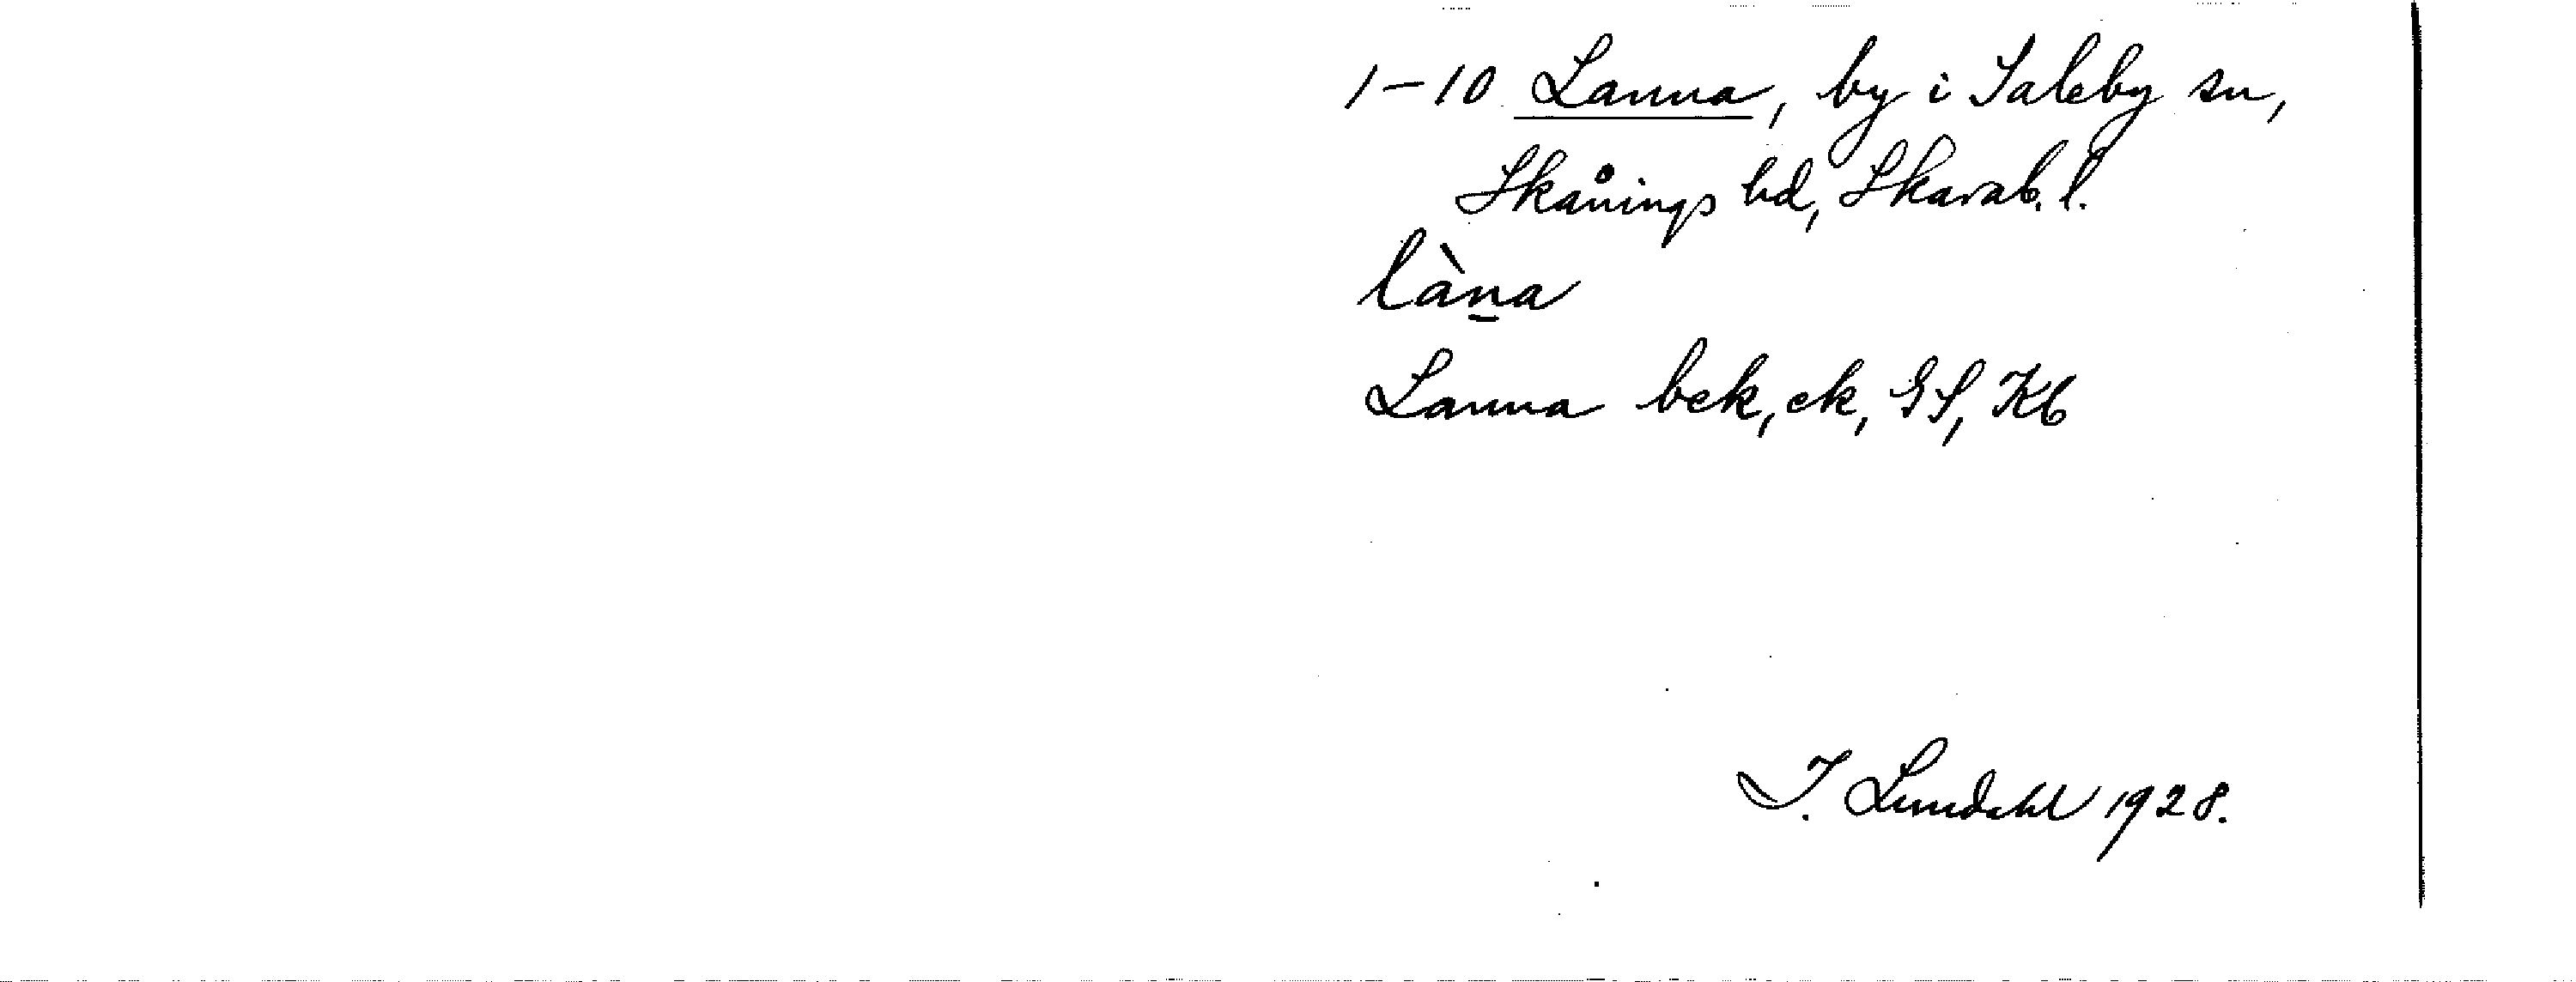 1-10 Lanna, by i Saleby sn,
Skånings hd, Skarab. l.
làn̲a
Lanna bek, ek, GS, Kb
I. Lundahl 1928.